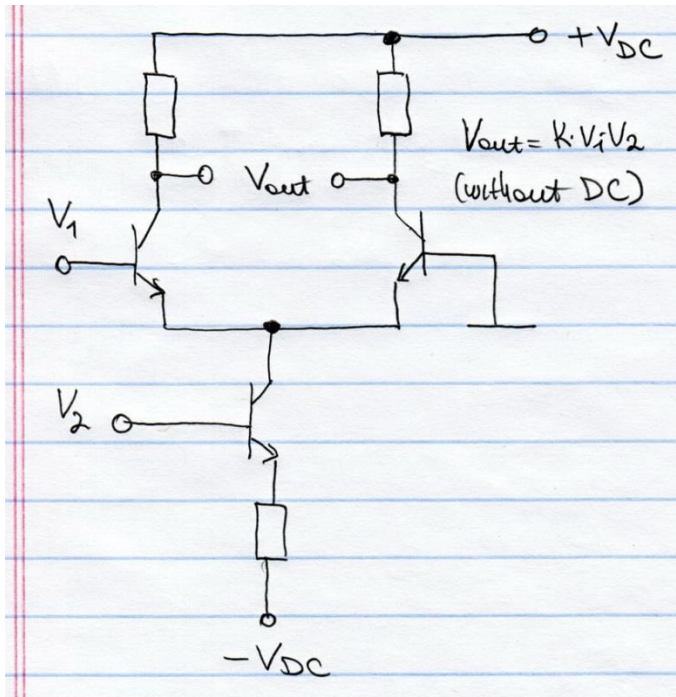 +V_DC
Vout = K·V₁V₂
(without DC)
Vout
V₁
V₂
-V_DC